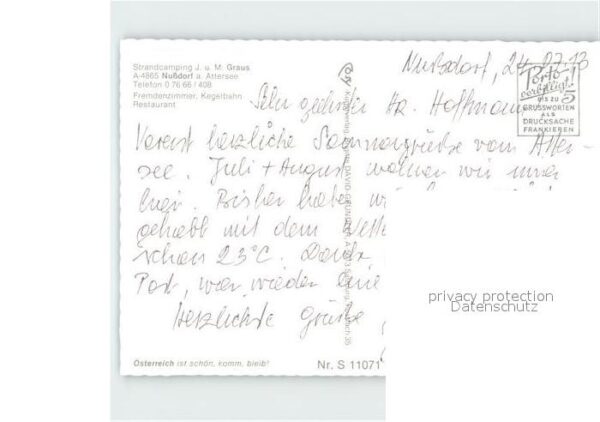 Strandcamping J. u. M. Graus
A-4865 Nußdorf a. Attersee
Telefon 0 76 66 / 408
Fremdenzimmer, Kegelbahn
Restaurant
Nußdorf, 24.07.
Porto
verbilligt!
5
BIS ZU
GRUSSWORTEN
ALS
DRUCKSACHE
FRANKIEREN
Sehr geehrter Hr. Hoffmann
Vorerst herzliche Sommergrüße vom Atter-
see. Juli + August wohnen wir immer
hier. Bisher haben wir
gehabt mit dem Wette
schon 23°C. Danke
Post, war wieder eine
Herzlichste Grüße,
Österreich ist schön, komm, bleib!
Nr. S 11071
privacy protection
Datenschutz